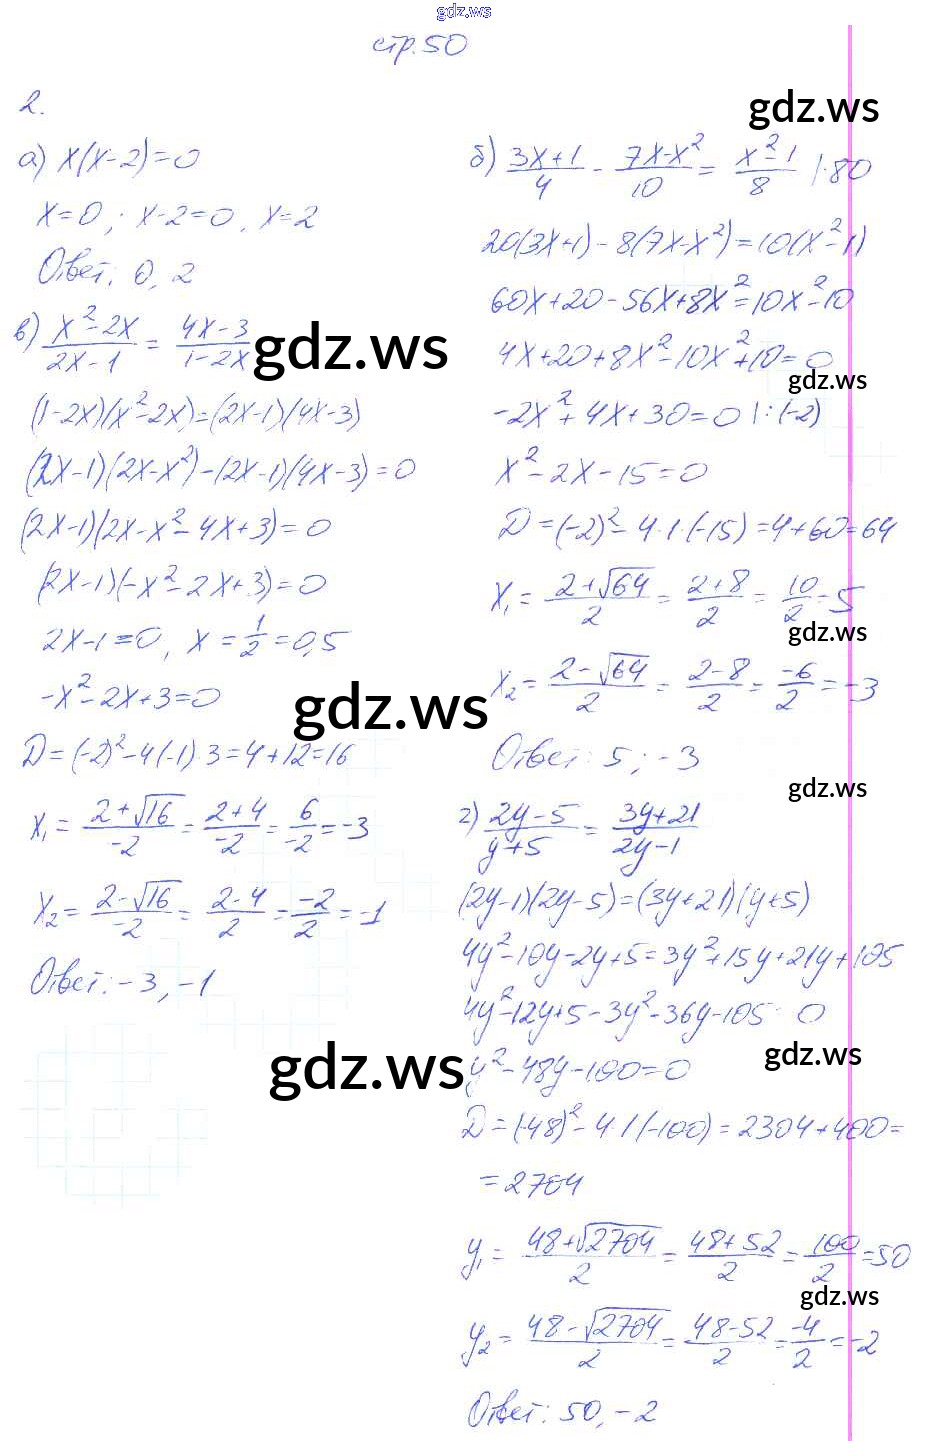 gdz.ws
стр.50
2.
а) x(x-2)=0
x=0 ; x-2=0, x=2
Ответ: 0, 2
в) (x²-2x)/(2x-1) = (4x-3)/(1-2x)
gdz.ws
(1-2x)(x²-2x)=(2x-1)(4x-3)
(2x-1)(2x-x²)-(2x-1)(4x-3)=0
(2x-1)(2x-x²-4x+3)=0
(2x-1)(-x²-2x+3)=0
2x-1=0, x=1/2=0,5
-x²-2x+3=0
gdz.ws
D=(-2)²-4(-1)·3=4+12=16
x₁=(2+√16)/(-2)=(2+4)/(-2)=6/(-2)=-3
x₂=(2-√16)/(-2)=(2-4)/2=(-2)/2=-1
Ответ: -3, -1
gdz.ws
gdz.ws
б) (3x+1)/4 - (7x-x²)/10 = (x²-1)/8 |·80
20(3x+1)-8(7x-x²)=10(x²-1)
60x+20-56x+8x²=10x²-10
4x+20+8x²-10x²+10=0
gdz.ws
-2x²+4x+30=0 |:(-2)
x²-2x-15=0
D=(-2)²-4·1·(-15)=4+60=64
x₁=(2+√64)/2=(2+8)/2=10/2=5
gdz.ws
x₂=(2-√64)/2=(2-8)/2=(-6)/2=-3
Ответ: 5; -3
gdz.ws
г) (2y-5)/(y+5)=(3y+21)/(2y-1)
(2y-1)(2y-5)=(3y+21)(y+5)
4y²-10y-2y+5=3y²+15y+21y+105
4y²-12y+5-3y²-36y-105=0
gdz.ws
y²-48y-100=0
D=(-48)²-4·1(-100)=2304+400=
=2704
y₁=(48+√2704)/2=(48+52)/2=100/2=50
gdz.ws
y₂=(48-√2704)/2=(48-52)/2=(-4)/2=-2
Ответ: 50, -2